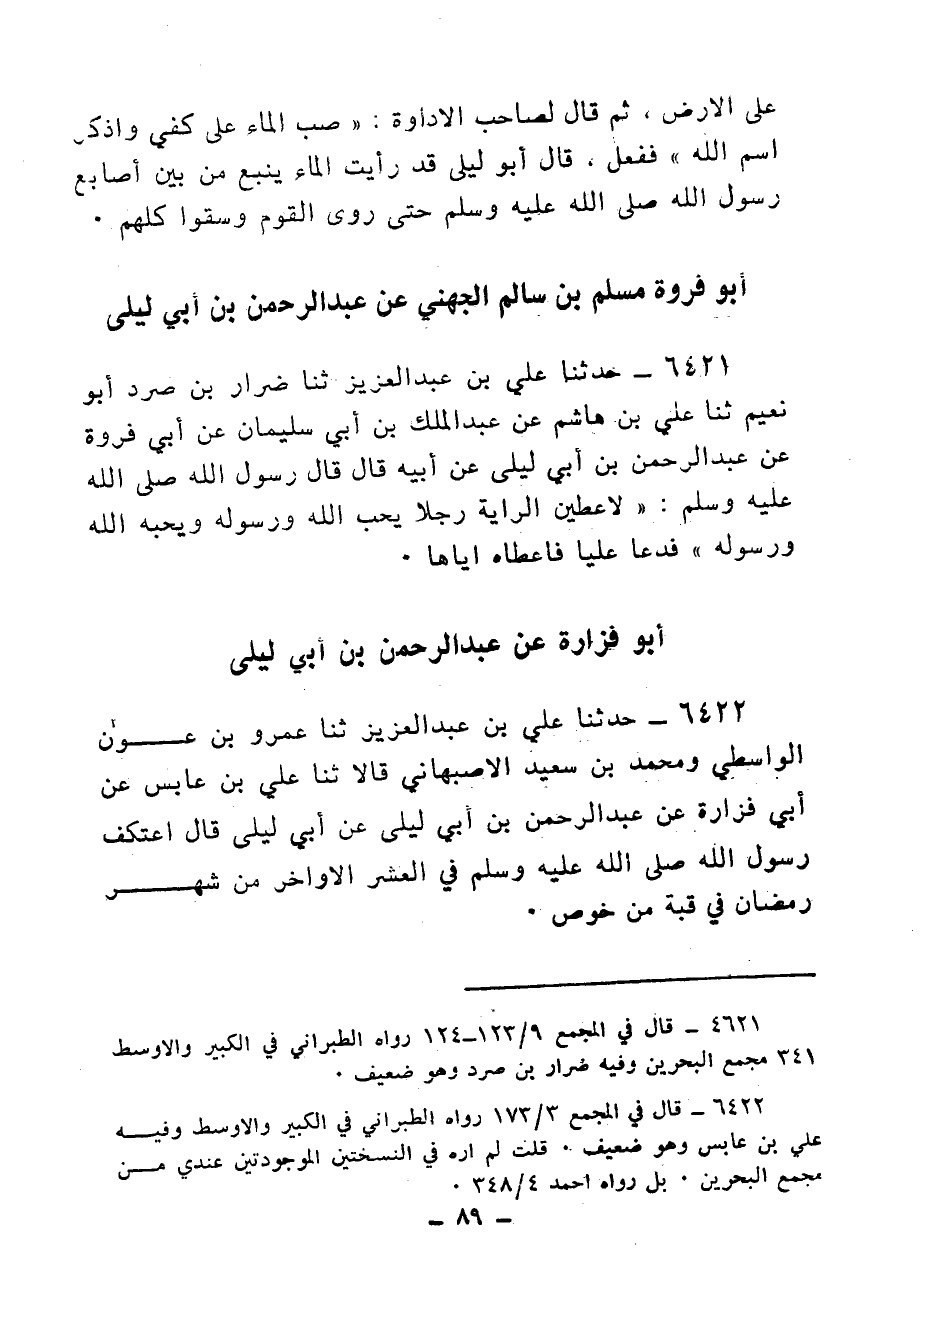 على الارض ، ثم قال لصاحب الاداوة : « صب الماء على كفي واذكر
اسم الله » ففعل ، قال أبو ليلى قد رأيت الماء ينبع من بين أصابع
رسول الله صلى الله عليه وسلم حتى روى القوم وسقوا كلهم ٠
أبو فروة مسلم بن سالم الجهني عن عبدالرحمن بن أبي ليلى
٦٤٢١ ـ حدثنا علي بن عبدالعزيز ثنا ضرار بن صرد أبو
نعيم ثنا علي بن هاشم عن عبدالملك بن أبي سليمان عن أبي فروة
عن عبدالرحمن بن أبي ليلى عن أبيه قال قال رسول الله صلى الله
عليه وسلم : « لاعطين الراية رجلا يحب الله ورسوله ويحبه الله
ورسوله » فدعا عليا فاعطاه اياها ٠
أبو فزارة عن عبدالرحمن بن أبي ليلى
٦٤٢٢ ـ حدثنا علي بن عبدالعزيز ثنا عمرو بن عـــــون
الواسطي ومحمد بن سعيد الاصبهاني قالا ثنا علي بن عابس عن
أبي فزارة عن عبدالرحمن بن أبي ليلى عن أبي ليلى قال اعتكف
رسول الله صلى الله عليه وسلم في العشر الاواخر من شهـــــر
رمضان في قبة من خوص ٠
٤٦٢١ ـ قال في المجمع ١٢٣/٩ـ١٢٤ رواه الطبراني في الكبير والاوسط
٣٤١ مجمع البحرين وفيه ضرار بن صرد وهو ضعيف ٠
٦٤٢٢ ـ قال في المجمع ١٧٣/٣ رواه الطبراني في الكبير والاوسط وفيـــه
علي بن عابس وهو ضعيف ٠ قلت لم اره في النسختين الموجودتين عندي مـــن
مجمع البحرين ٠ بل رواه احمد ٣٤٨/٤ ٠
ـ ٨٩ ـ